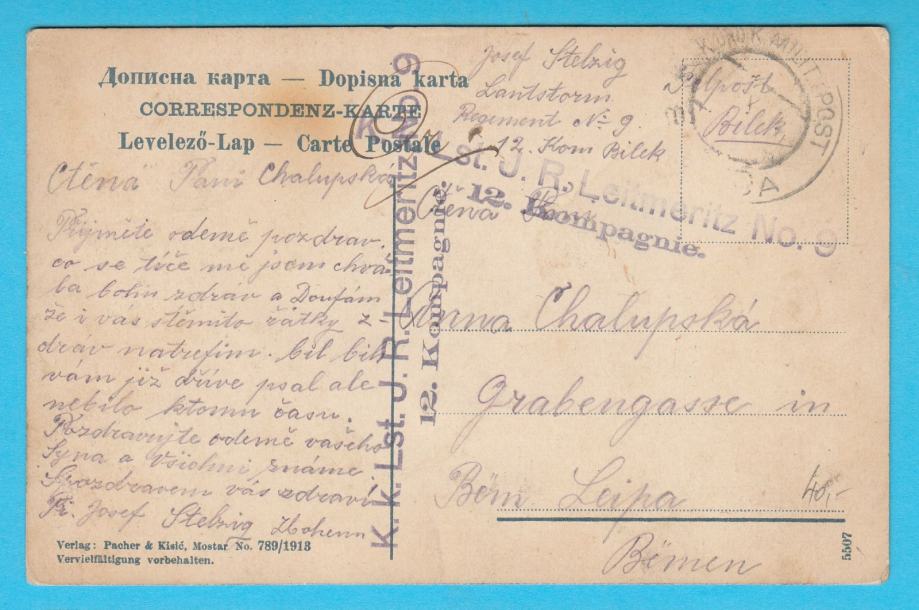 Дописна карта — Dopisna karta
CORRESPONDENZ-KARTE
Levelező-Lap — Carte Postale
Josef Stelzig
Lantstorm
Regement No 9
12. Kom Bilek
Feldpost
Bilek
K. UND K. MILIT. POST
K. k. Lst. J. R. Leitmeritz No. 9
12. Kompagnie.
K. k. Lst. J. R. Leitmeritz No. 9
12. Kompagnie.
Ctěná Paní Chalupská
Přijměte odemě pozdrav.
co se tíče mě jsem chvá-
la bohu zdrav a Doufám
že i vás stěmito řátky z-
dráv natrefim. bil bih
vám již dříve psal ale
nebilo ktomu času.
Pozdravujte odemě vašeho
Syna a Všichni známe
Spozdravem vás zdraví
Josef Stelzig
Ctěná Paní
Anna Chalupská
Grabengasse in
Böm Leipa
Bömen
40,-
Verlag: Pacher & Kisić, Mostar No. 789/1913
Vervielfältigung vorbehalten.
5507